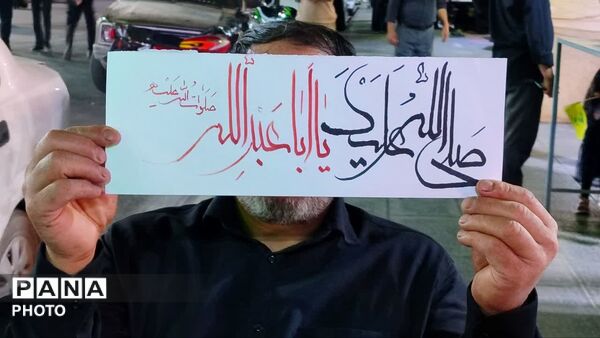 صلی الله علیک یا أبا عبد الله
صلوات الله علیه
PANA
PHOTO